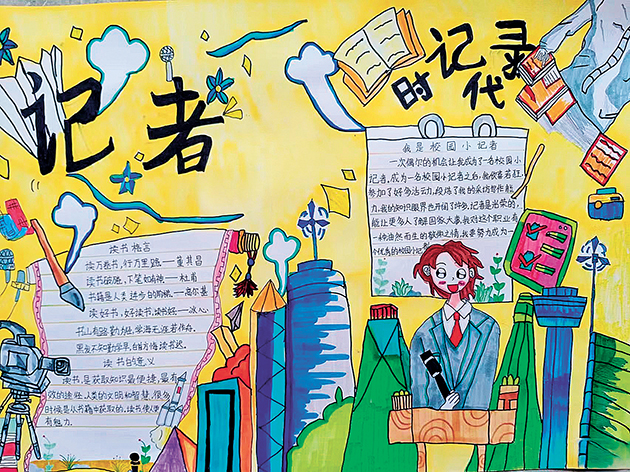 记者
时代记录
读书格言
读万卷书，行万里路——董其昌
读书破万卷，下笔如有神——杜甫
书籍是人类进步的阶梯——高尔基
读好书，好读书，读书好——冰心
书山有路勤为径，学海无涯苦作舟。
黑发不知勤学早，白首方悔读书迟。
读书的意义
读书，是获取知识最便捷，最有
效的途径，人类的文明和智慧，很多
时候是从书籍中获取的，读书使人更
有魅力。
我是校园小记者
一次偶尔的机会让我成为了一名校园小
记者，成为一名校园小记者之后，我欣喜若狂，
参加了好多活动，锻炼了我的采访写作能
力，我的知识眼界也开阔了许多，记者是光荣的，
能让更多人了解国家大事，我对这个职业有
一种油然而生的敬佩之情，我要努力成为一
个优秀的校园小记者